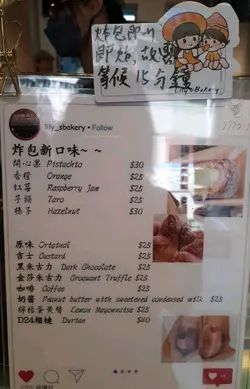 炸包即叫
即炸，故需
等候 15分鐘
Lily's Bakery
lily_sbakery • Follow
炸包新口味~ ~
開心果 Pistachio $30
香橙 Orange $25
紅莓 Raspberry Jam $25
芋頭 Taro $25
榛子 Hazelnut $30
原味 Original $25
吉士 Custard $25
黑朱古力 Dark Chocolate $25
金莎朱古力 Croquant Truffle $25
咖啡 Coffee $25
奶醬 Peanut butter with sweetened condensed milk $25
檸檬蛋黃醬 Lemon Mayonnaise $25
D24榴槤 Durian $40